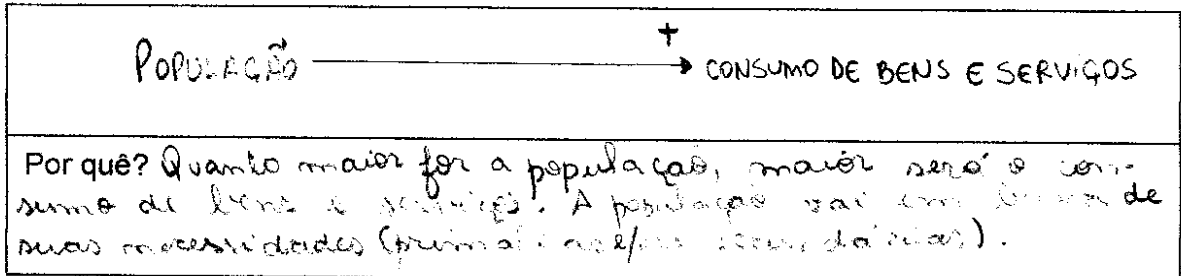 POPULAÇÃO + CONSUMO DE BENS E SERVIÇOS
Por quê? Quanto maior for a população, maior será o con-
sumo de bens e serviços. A população vai em busca de
suas necessidades (primárias e/ou secundárias).